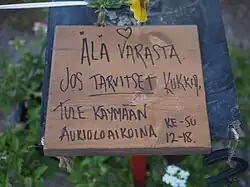 ÄLÄ VARASTA.
JOS TARVITSET KUKKIA,
TULE KÄYMÄÄN
AUKIOLOAIKOINA KE-SU
12-18.